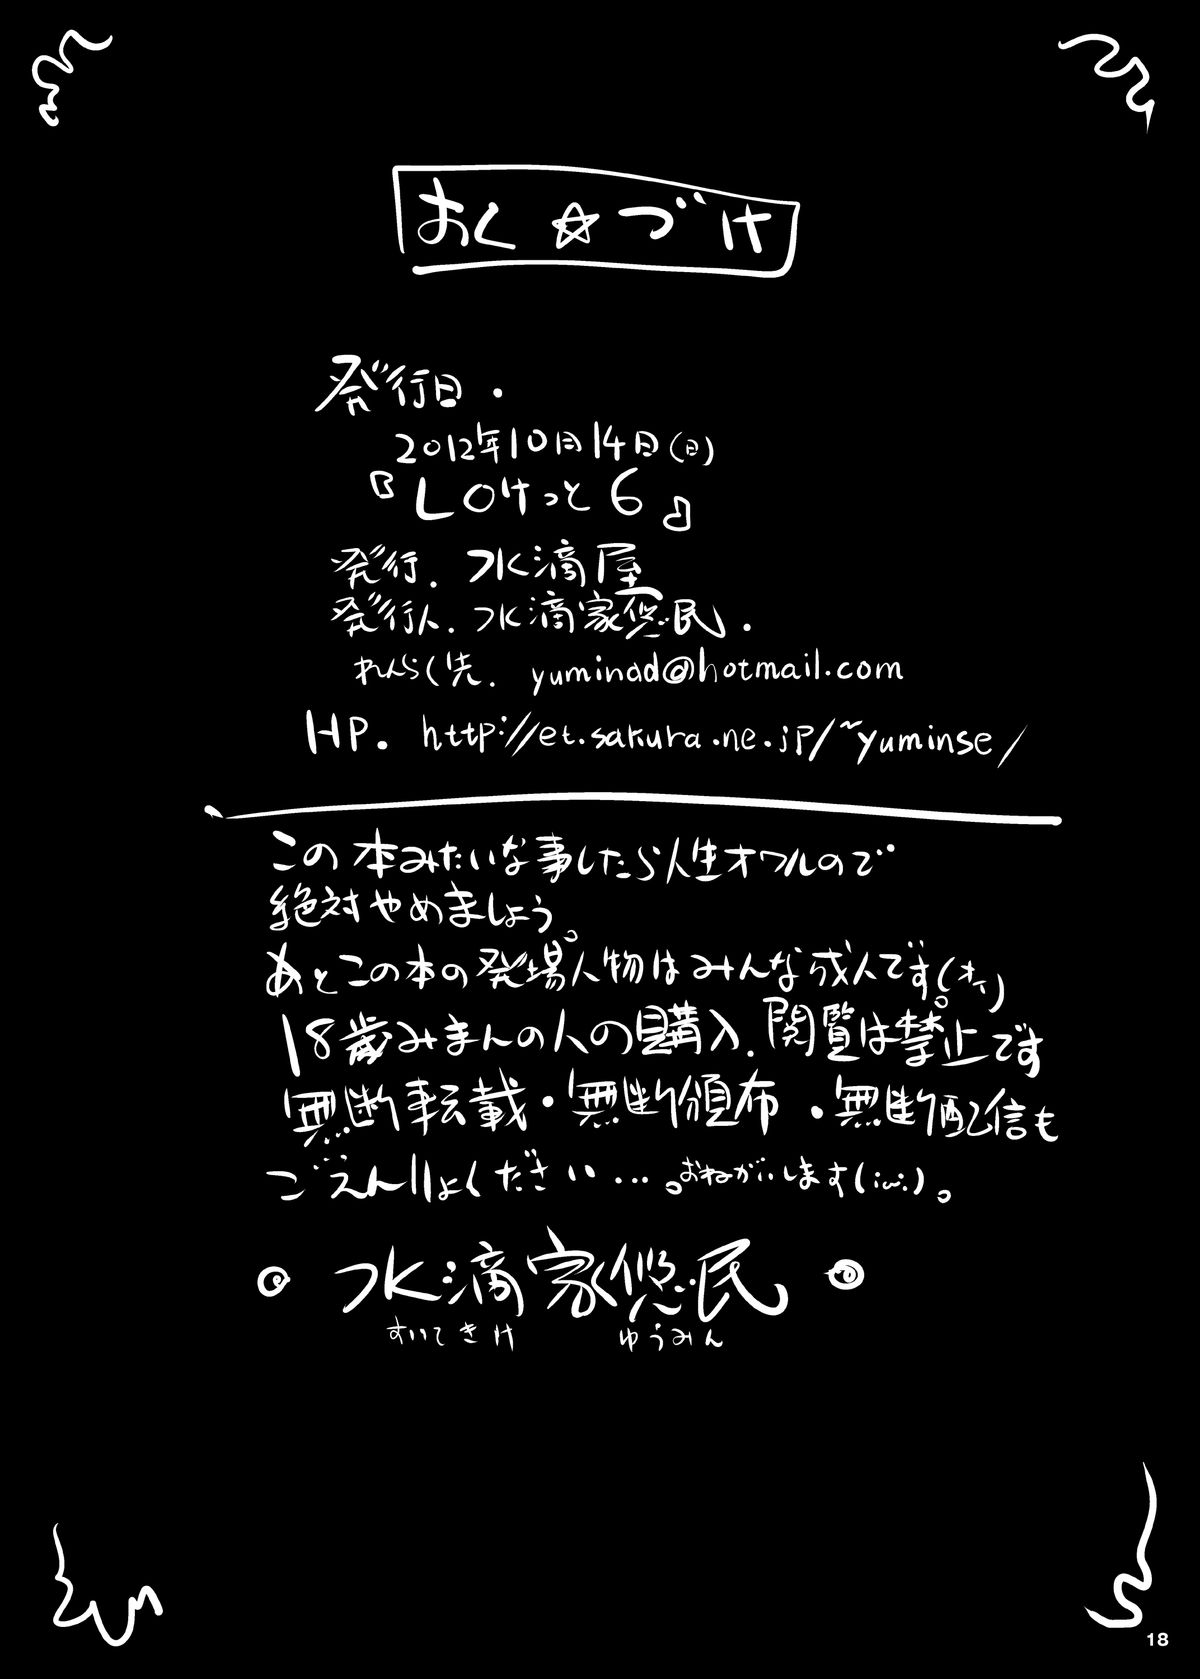 おく☆づけ
発行日.
2012年10月14日(日)
『LOけっと6』
発行.水滴屋
発行人.水滴家悠民.
れんらく先. yuminad@hotmail.com
HP. http://et.sakura.ne.jp/~yuminse/
この本みたいな事したら人生オワルので
絶対やめましょう。
あとこの本の発場人物はみんな成人です(オイ)
18歳みまんの人の購入.閲覧は禁止です
無断転載・無断頒布・無断配信も
ごえんりょください…。おねがいします(;ω;)。
◎ 水滴家悠民 ◎
すいてきけ ゆうみん
18